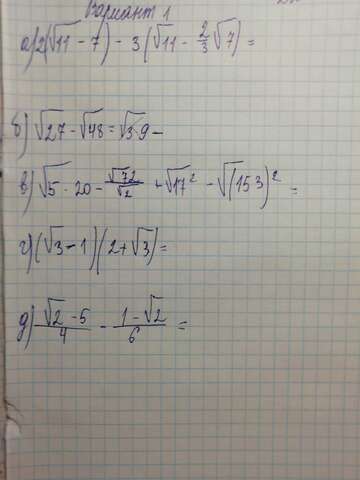 Вариант 1
а) 2(√11 - 7) - 3(√11 - 2/3 √7) =
б) √27 - √48 = √3·9 -
в) √5·20 - √72/√2 + √17² - √(153)² =
г) (√3 - 1)(2 + √3) =
д) (√2 - 5)/4 - (1 - √2)/6 =